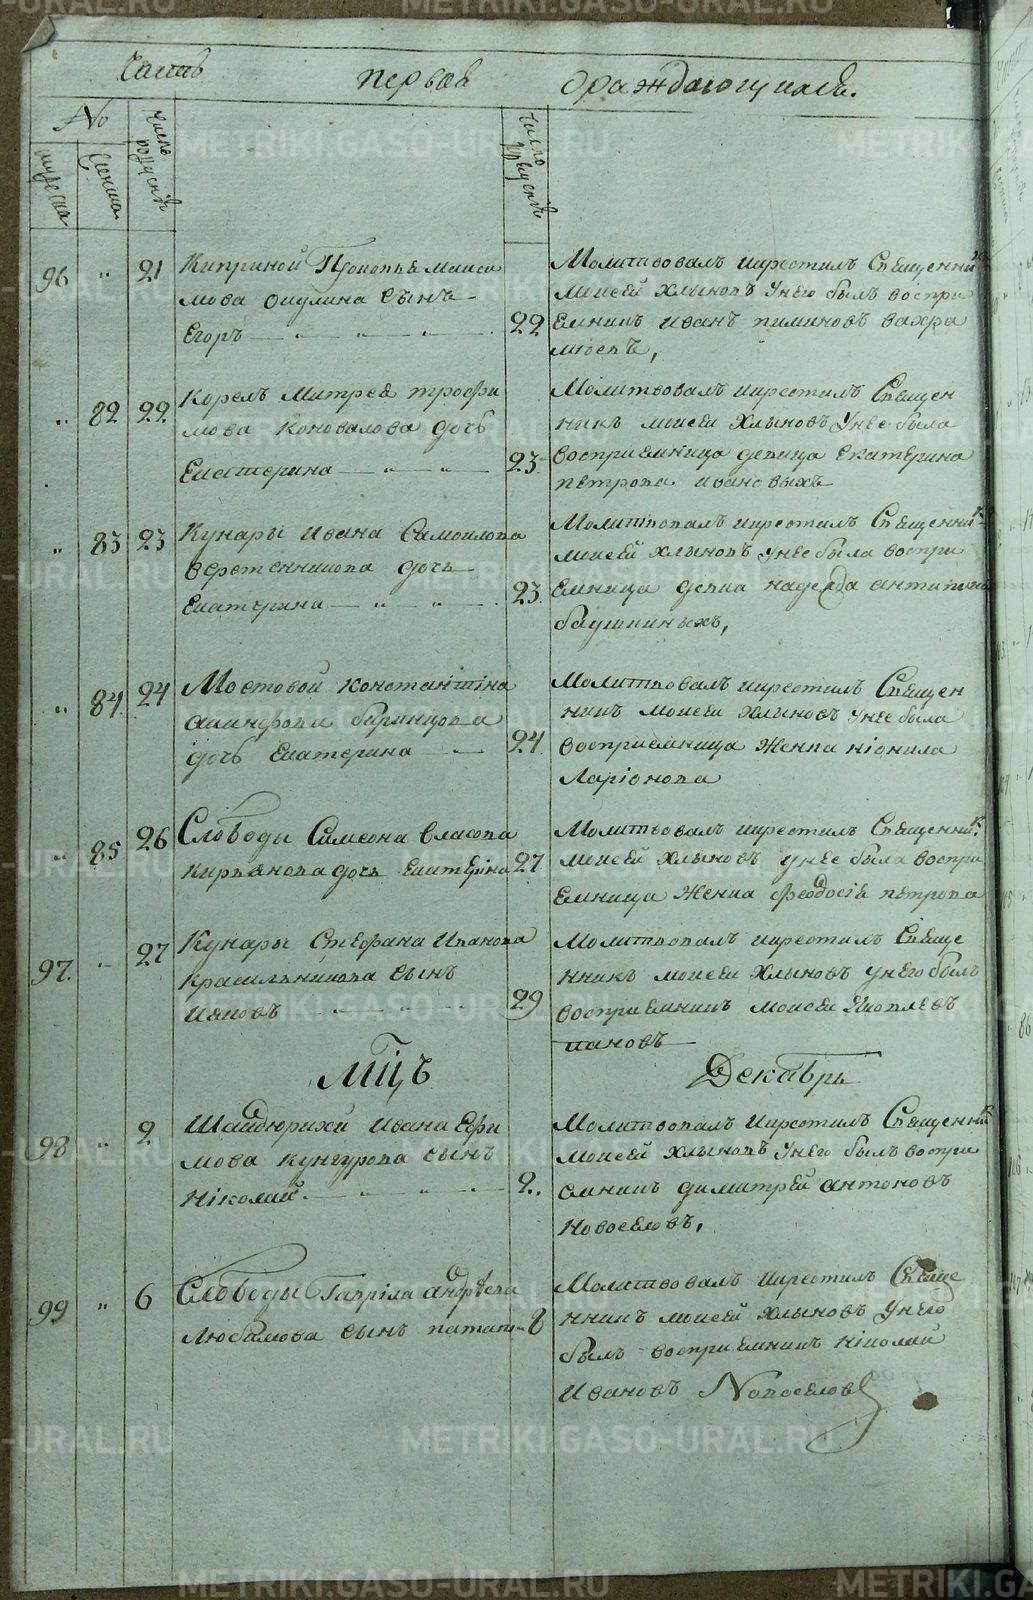 Часть первая ораждающихсѧ.
№
мужеска
женска
число рожденiѧ
число крещенiѧ
96 " 21 Киприной Прокопьѧ Макси
мова Окулина сынъ
Егоръ — " — " — " —
22
Молитвовалъ икрестилъ Священникъ
Моисей Хлыновъ Унего былъ воспри
Емникъ Иванъ Пиминовъ Вахра
мѣевъ,
" 82 22 Корелъ Митреѧ трофи
мова Коновалова дочь
Екатерина — " — " —
23
Молитвовалъ икрестилъ Священ
никъ моисей Хлыновъ Унее была
восприемница девица Екатерина
Петрова ивановыхъ
" 83 23 Кунары Ивана Самоилова
веретенникова дочь
Екатерина — " — " —
23.
Молитвовалъ икрестилъ Священникъ
моисей Хлыновъ Унее была воспри
Емница девка надежда
баушкиныхъ,
" 84. 24 Мостовой Константина
дочь Екатерина — " —
24
Молитвовалъ икрестилъ Священ
никъ моисей Хлыновъ Унее была
восприемница Женка нiонила
Ларiонова
" 85 26 Слободы Симеона Власова
Кирьѧнова дочь Екатерина
27
Молитвовалъ икрестилъ Священникъ
моисей Хлыновъ унее была воспри
Емница Женка Феодосiѧ петрова
97. " 27 Кунары Стефана Иванова
Красильникова сынъ
Иѧковъ
29
Молитвовалъ икрестилъ Свѧще
нникъ моисей Хлыновъ унего былъ
восприемникъ моисей Иѧковлевъ
пановъ
Мцъ Декабрь
98 " 2 Шайдюрихи Ивана Ефи
мова Кунгурова сынъ
Нiколай — " — " —
2.
Молитвовалъ икрестилъ Священникъ
Моисей Хлыновъ Унего былъ воспри
емникъ димитрей антоновъ
Новоселовъ,
99 " 6 Слободы Гаврiла андрѣева
Любимова сынъ
8
Молитвовалъ икрестилъ Свѧще
нникъ моисей Хлыновъ Унего
былъ восприемникъ Нiколай
Ивановъ Новоселовъ
METRIKI.GASO-URAL.RU